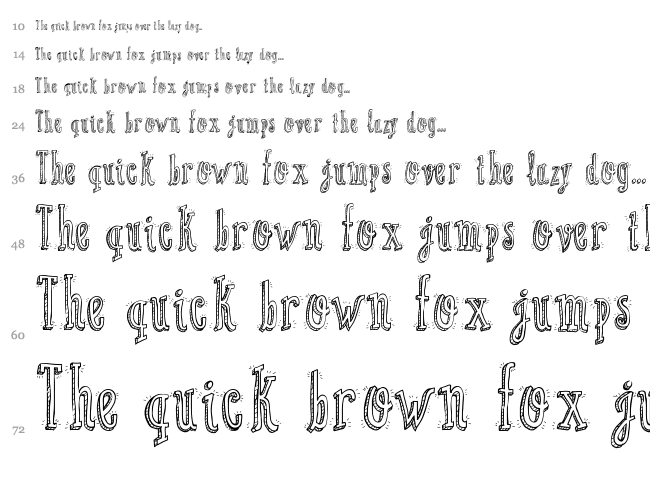 10 The quick brown fox jumps over the lazy dog...
14 The quick brown fox jumps over the lazy dog...
18 The quick brown fox jumps over the lazy dog...
24 The quick brown fox jumps over the lazy dog...
36 The quick brown fox jumps over the lazy dog...
48 The quick brown fox jumps over th
60 The quick brown fox jumps
72 The quick brown fox ju